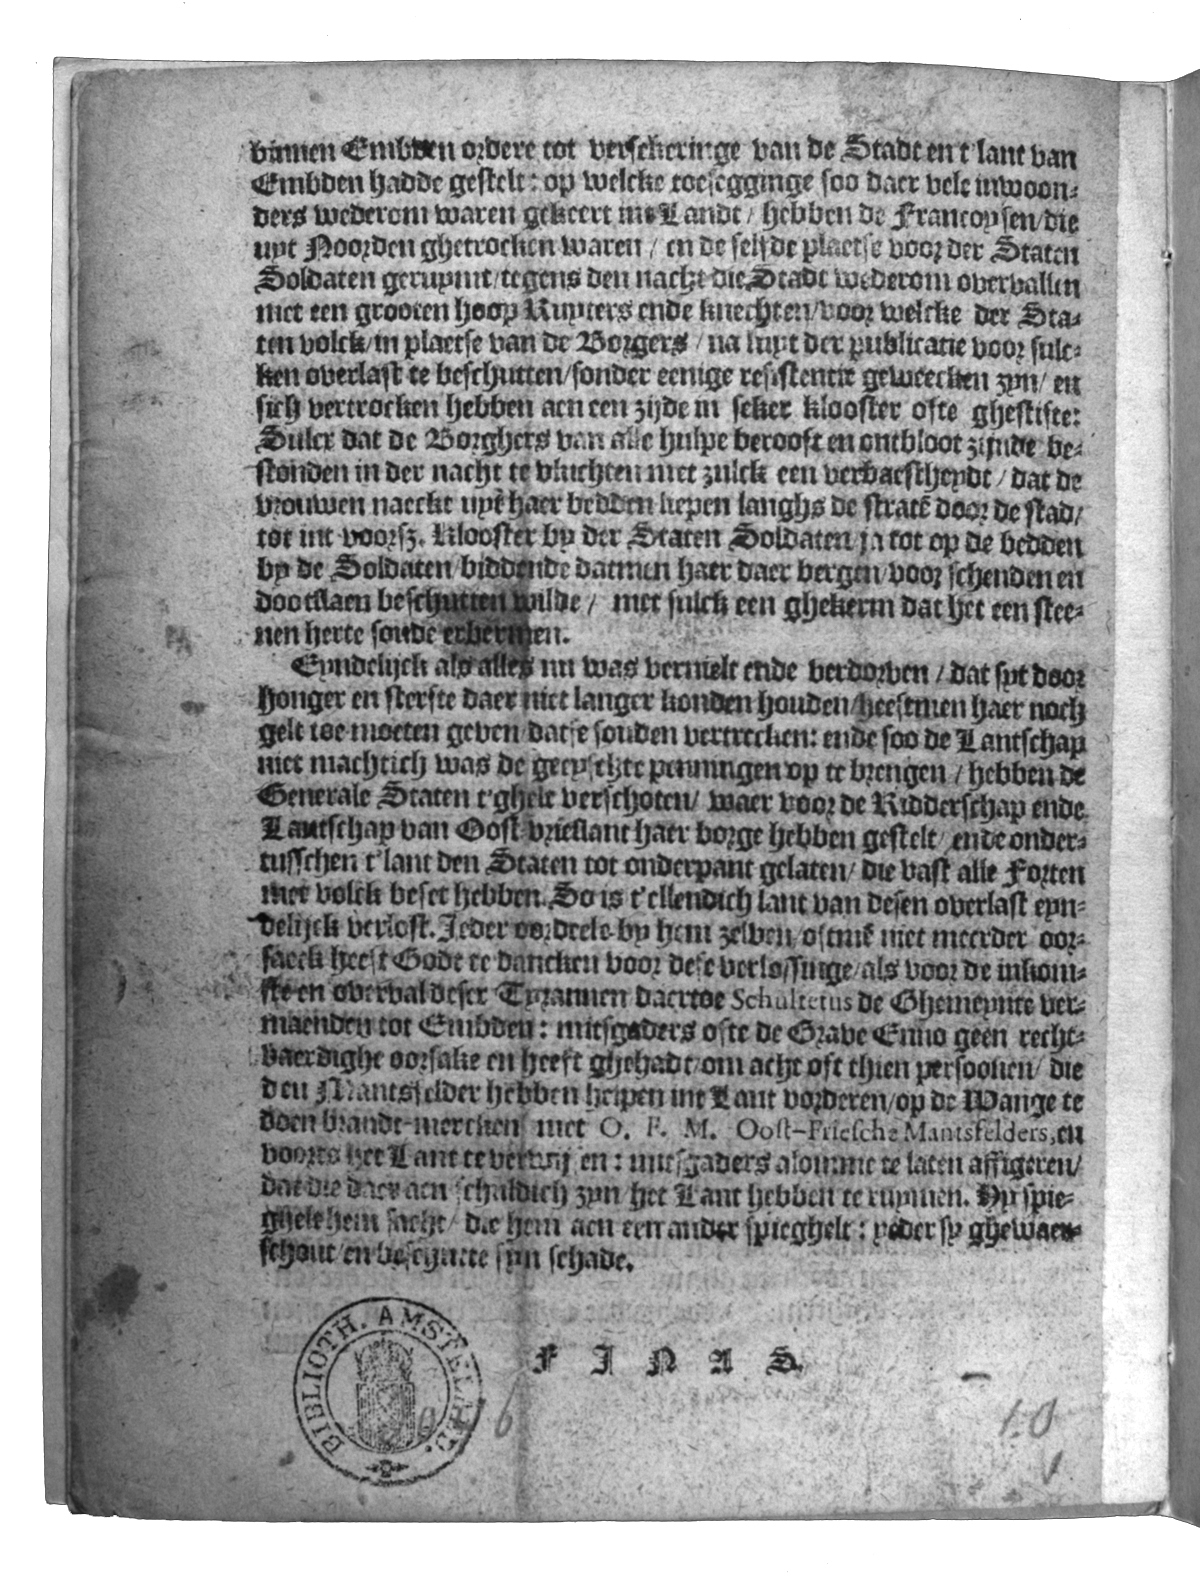 binnen Embden ordere tot verseheringe van de Stadt en t'lant van
Embden hadde gestelt: op welcke toesegginge soo daer vele inwoon-
ders wederom waren gekeert int Landt / hebben de Francoysen / die
uyt Noorden ghetrocken waren / en de selfde plaetse voor der Staten
Soldaten geruymt / tegens den nacht die Stadt wederom overvallen
met een grooten hoop Ruyters ende knechten / voor welcke der Sta-
ten volck / in plaetse van de Borgers / na luyt der publicatie voor sulc-
ken overlast te beschutten / sonder eenige resistentie geweecken zyn / en
sich vertrocken hebben aen een zijde in seker klooster ofte ghestifte:
Sulcx dat de Borghers van alle hulpe berooft en ontbloot zijnde be-
stonden in der nacht te vluchten met zulck een verbaestheydt / dat de
vrouwen naeckt uyt haer bedden liepen langhs de stratē door de stad /
tot int voorsz. Klooster by der Staten Soldaten / ja tot op de bedden
by de Soldaten / biddende datmen haer daer bergen / voor schenden en
dootslaen beschutten wilde / met sulck een ghekerm dat het een stee-
nen herte soude erbermen.
Eyndelijck als alles nu was vernielt ende verdorven / dat syt door
honger en sterfte daer niet langer konden houden / heeftmen haer noch
gelt toe moeten geven datse souden vertrecken: ende soo de Lantschap
niet machtich was de geeyschte penningen op te brengen / hebben de
Generale Staten t'ghelt verschoten / waer voor de Ridderschap ende
Lantschap van Oost-vrieslant haer borge hebben gestelt / ende onder-
tusschen t'lant den Staten tot onderpant gelaten / die vast alle Forten
met volck beset hebben. So is t'ellendich lant van desen overlast eyn-
delijck verlost. Jeder oordeele by hem zelven / oftmē niet meerder oor-
saeck heeft Godt te dancken voor dese verlossinge / als voor de inkom-
ste en overval deser Tyrannen daertoe Schultetus de Ghemeynte ver-
maenden tot Embden: mitsgaders ofte de Grave Enno geen recht-
vaerdighe oorsake en heeft ghehadt / om acht oft thien persoonen / die
den Mantsfelder hebben helpen int Lant vorderen / op de Wange te
doen brandt-mercken met O. F. M. Oost-Friesche Mantsfelders, en
voorts het Lant te verwijsen: mitsgaders alomme te laten affigeren /
dat die daer aen schuldich zyn het Lant hebben te ruymen. Hy spie-
ghelt hem sacht / die hem aen een ander spieghelt: yeder sy ghewaer-
schout en beschutte syn schade.
F I N A S
BIBLIOTH. AMSTELÆD.
6
10